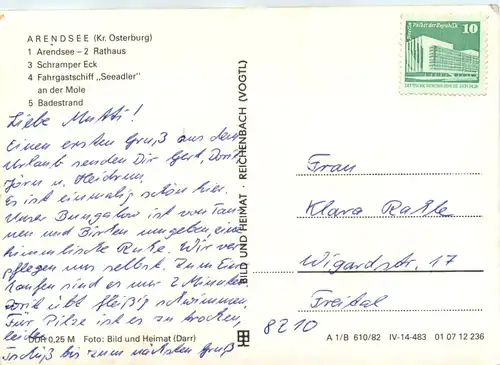 ARENDSEE (Kr. Osterburg)
1 Arendsee – 2 Rathaus
3 Schramper Eck
4 Fahrgastschiff „Seeadler"
an der Mole
5 Badestrand
Liebe Mutti!
Einen ersten Gruß aus dem
Urlaub senden Dir Gert, Dorit
Jörn u. Heidrun.
Es ist einmalig schön hier.
Unser Bungalow ist von Tan-
nen und Birken umgeben, eine
himmlische Ruhe. Wir ver-
pflegen uns selbst. Zum Ein-
kaufen sind es nur 2 Minuten.
Dorit übt fleißig schwimmen.
Für Pilze ist es zu trocken,
leider.
Tschüß bis zum nächsten Gruß
DDR 0,25 M Foto: Bild und Heimat (Darr)
BILD UND HEIMAT · REICHENBACH (VOGTL)
Palast der Republik
10
DEUTSCHE DEMOKRATISCHE REPUBLIK
Frau
Klara
Wigardstr. 17
Freital
8210
A 1/B 610/82 IV-14-483 01 07 12 236